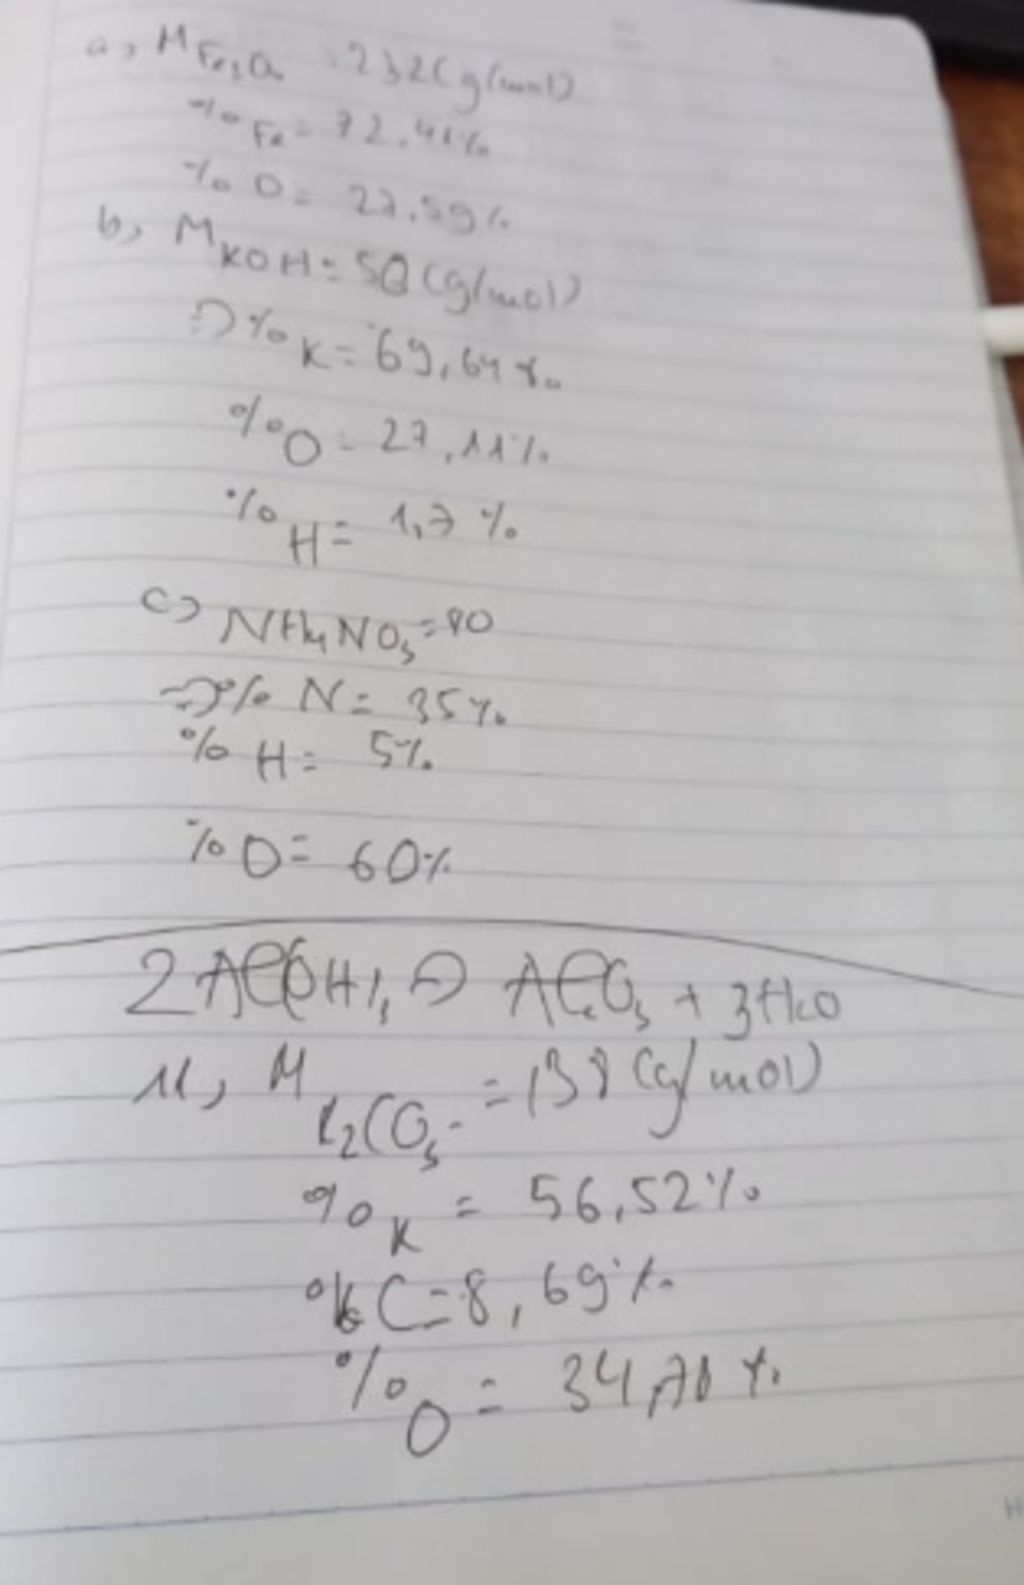 a, M Fe3O4 = 232 (g/mol)
% Fe = 72,41%
% O = 27,59%
b, M KOH = 56 (g/mol)
=> % K = 69,64%
% O = 27,11%
% H = 1,7 %
c) NH4NO3 = 80
=> % N = 35%
% H = 5%
% O = 60%
2Al(OH)3 → Al2O3 + 3H2O
11, M K2CO3 = 138 (g/mol)
% K = 56,52%
% C = 8,69%
% O = 34,78 %